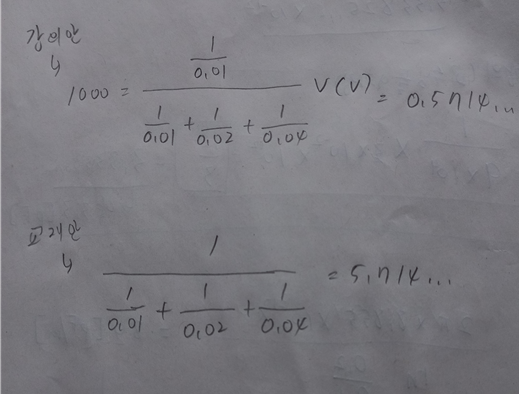 강의안
↳ 1000 = \frac{\frac{1}{0.01}}{\frac{1}{0.01} + \frac{1}{0.02} + \frac{1}{0.04}} V(V) = 0.5714...
교재안
↳ \frac{1}{\frac{1}{0.01} + \frac{1}{0.02} + \frac{1}{0.04}} = 5.714...